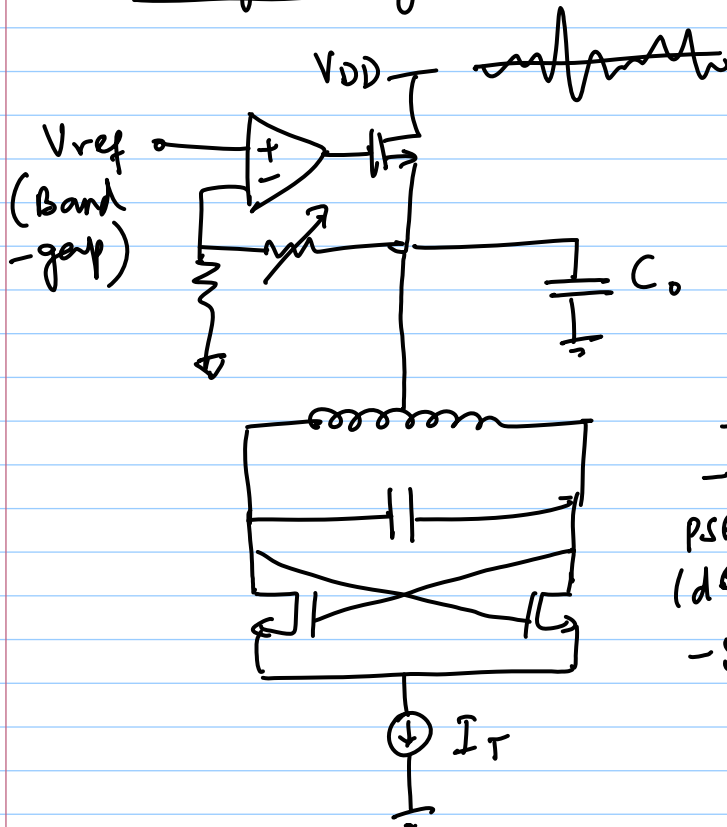 VDD
Vref
+
-
(Band
-gap)
Co
PS
(d
IT